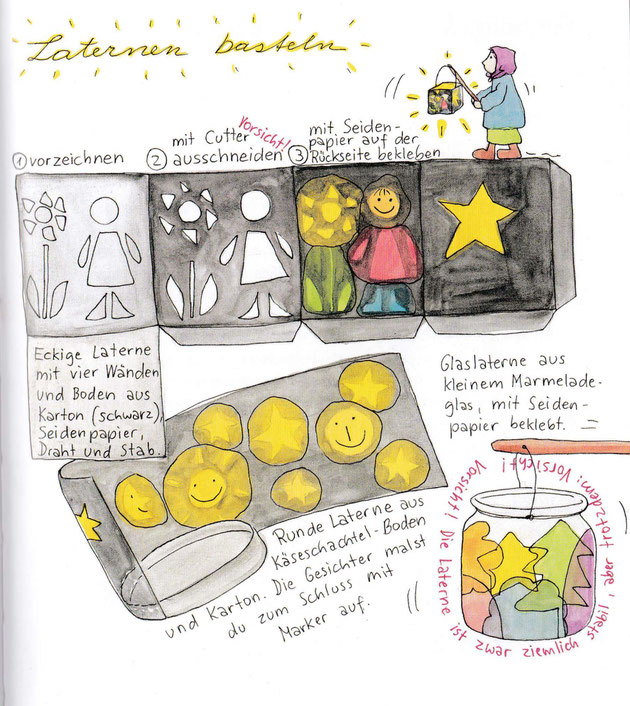 Laternen basteln
① vorzeichnen
② mit Cutter
Vorsicht!
ausschneiden
③ mit Seiden-
papier auf der
Rückseite bekleben
Eckige Laterne
mit vier Wänden
und Boden aus
Karton (schwarz),
Seidenpapier,
Draht und Stab.
Glaslaterne aus
kleinem Marmelade-
glas, mit Seiden-
papier beklebt.
Runde Laterne aus
Käseschachtel-Boden
und Karton. Die Gesichter malst
du zum Schluss mit
Marker auf.
Vorsicht! Die Laterne ist zwar ziemlich stabil, aber trotzdem: Vorsicht!